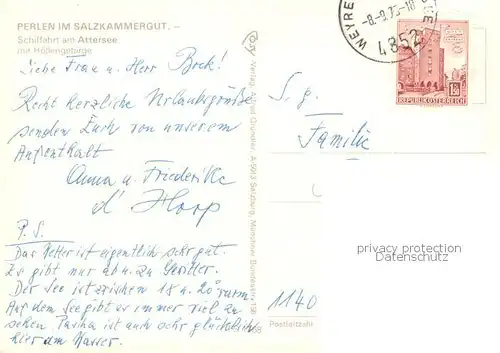 PERLEN IM SALZKAMMERGUT. –
Schiffahrt am Attersee
mit Höllengebirge
Liebe Frau u. Herr Bock!
Recht herzliche Urlaubsgrüße
senden Euch von unserem
Aufenthalt
Anna u. Friederike
d' Hoop
P.S.
Das Wetter ist eigentlich sehr gut.
Es gibt nur ab u. zu Gewitter.
Der See ist zwischen 18 u. 20° warm.
Auf dem See gibt es immer viel zu
sehen. ist auch sehr glücklich
hier am Wasser.
Verlag A-5013 Salzburg, Münchner Bundesstr.
WEYRE
-8.-9.
4852
1.50
REPUBLIK ÖSTERREICH
S. g.
Familie
privacy protection
Datenschutz
1140
Postleitzahl